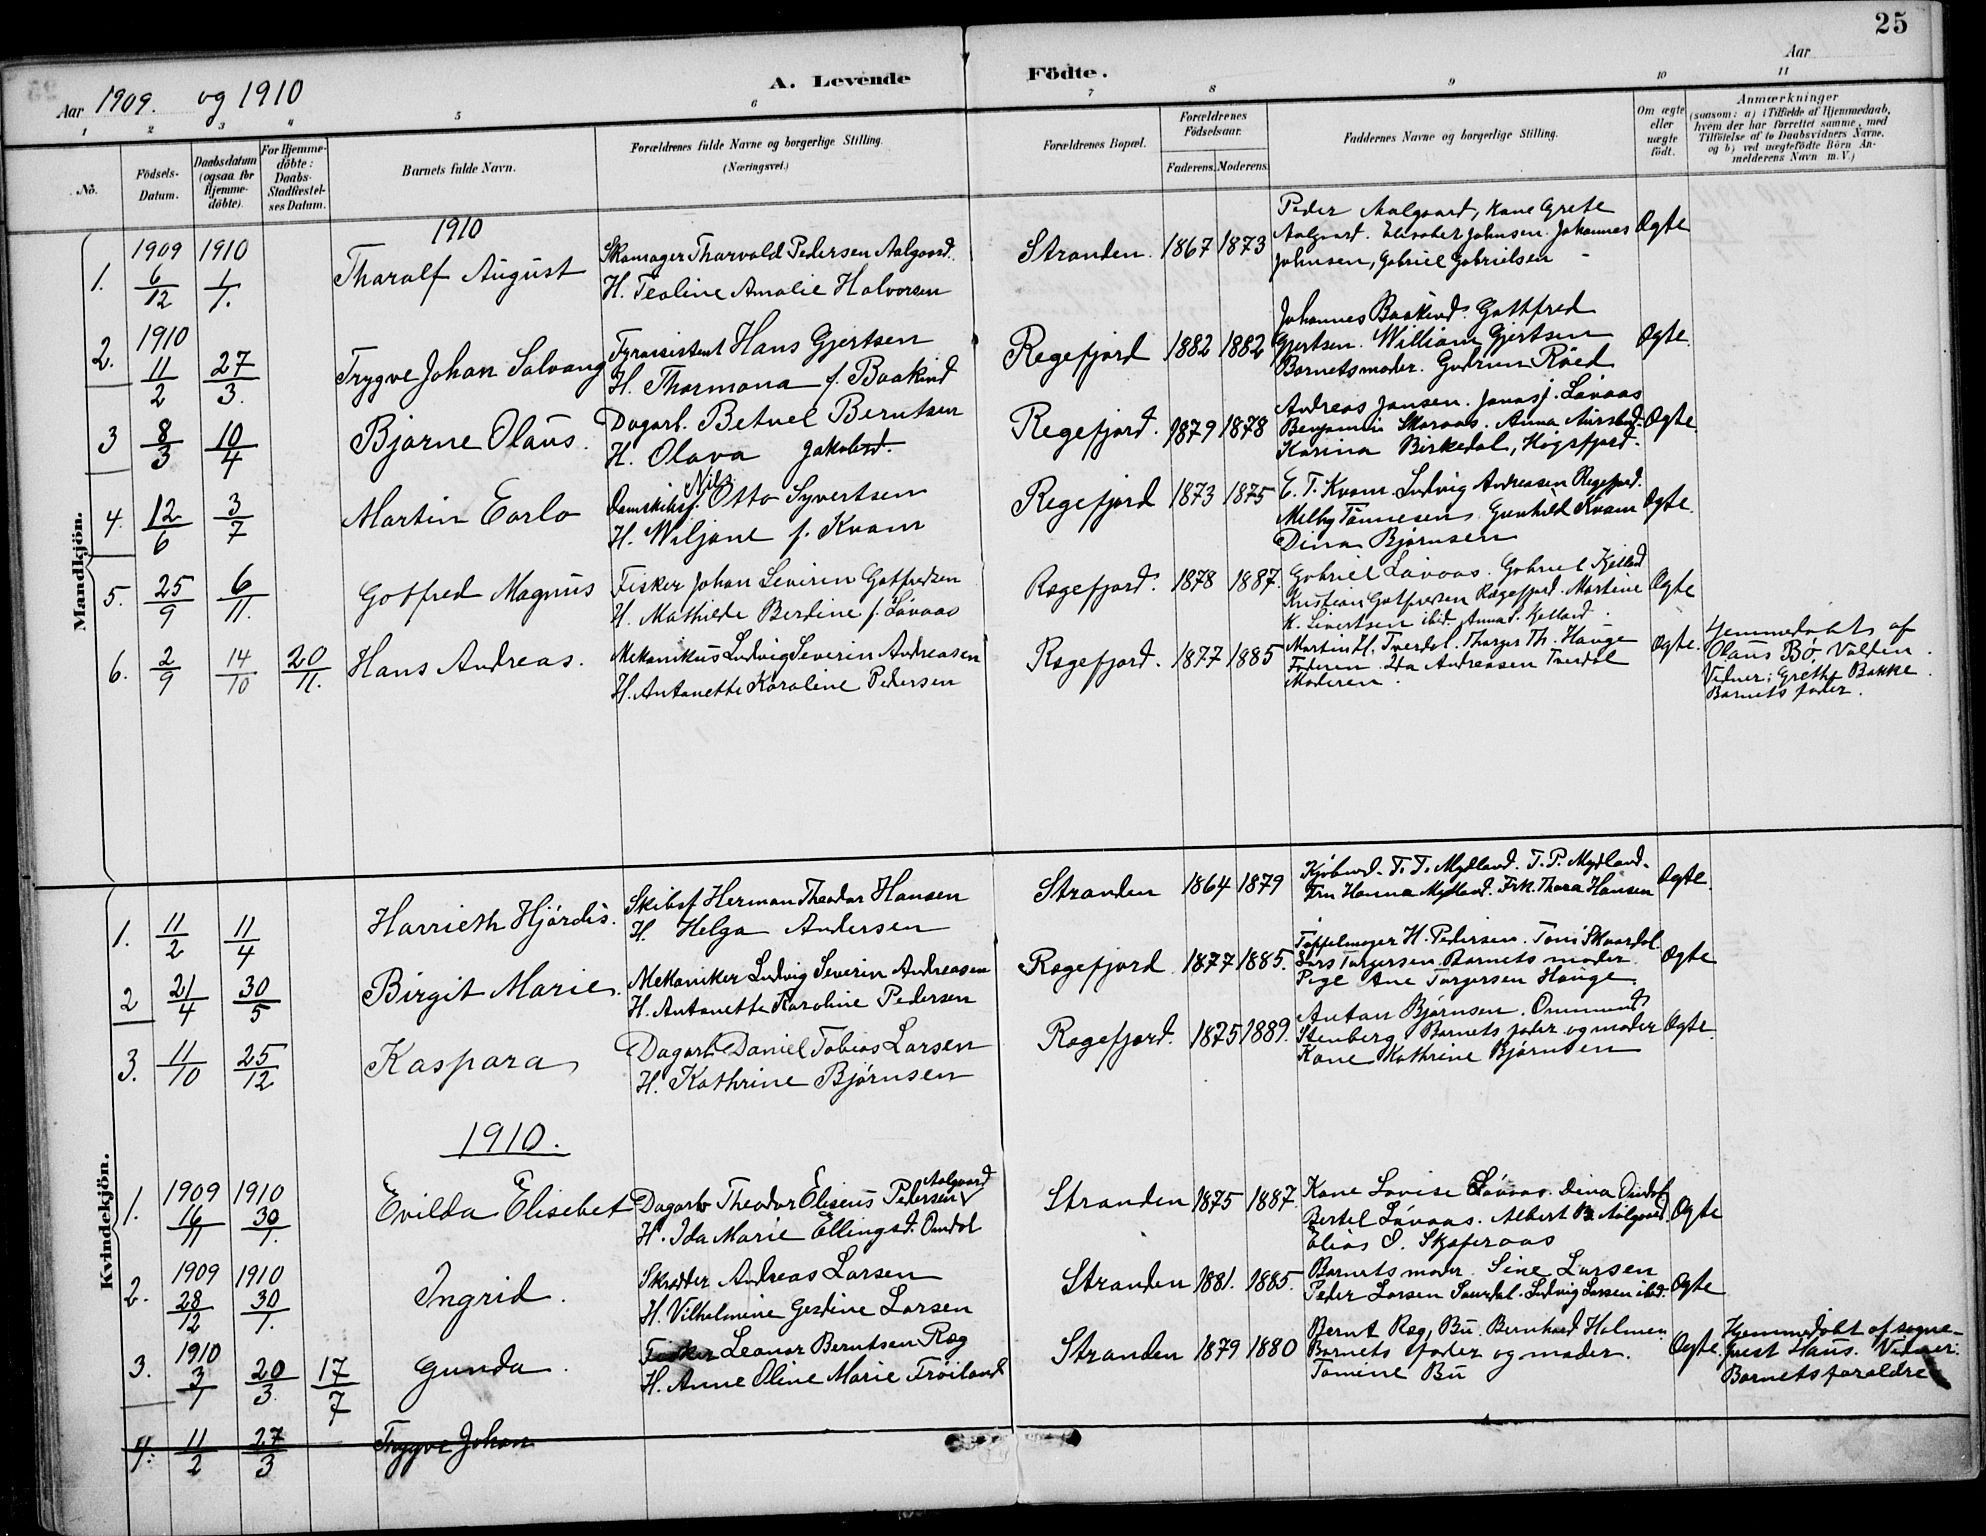 25
Aar 1909. og 1910
A. Levende Födte.
Aar
1 2 3 4 5 6 7 8 9 10 11
No.
Födsels-Datum.
Daabsdatum (ogsaa for Hjemmedöbte)
For Hjemmedöbte: Daabs-Stadfæstelses Datum.
Barnets fulde Navn.
Forældrenes fulde Navne og borgerlige Stilling.
(Næringsvei.)
Forældrenes Bopæl.
Forældrenes Födselsaar.
Faderens. Moderens.
Faddernes Navne og borgerlige Stilling.
Om ægte eller uægte födt.
Anmærkninger
(saasom: a) i Tilfælde af Hjemmedaab, hvem der har forrettet samme, med Tilföielse af to Daabsvidners Navne, og b) ved uægtefödte Börn Anmelderens Navn m.V.)
Mandkjön.
1910
1. 1909 6/12 1910 1/1. Tharalf August
Skomager Thorvald Pedersen Aalgaard.
H. Teoline Amalie Halvorsen
Stranden. 1867 1873
Peder Aalgaard, Kone Grete
Aalgaard. Elisabet Johnsen. Johannes
Johnsen, Gabriel Gabrielsen -
Ægte
2. 1910 11/2 27/3. Trygve Johan Salvang
Fyrassistent Hans Gjertsen
H. Thormona f. Baakind
Regefjord 1882 1882
Johannes Baakind. Gottfred
Gjertsen. William Gjertsen
Barnets moder. Gudrun Röed
Ægte.
3 8/3 10/4 Bjarne Olaus.
Dagarb. Betuel Berntsen
H. Olava Jakobsd.
Regefjord. 1879 1878
Andreas Jansen. Jonas J. Lávaas
Benjamin Skaraas. Anna
Karina Birkedal, Högsfjord.
Ægte.
4. 12/6 3/7 Martin Earlo
Damskibsf. Nils Otto Syvertsen
H. Wiljane f. Kvam
Regefjord 1873 1875
E. T. Kvam. Ludvig Andreasen Regefjord.
Melby Tönnesen. Gunhild Kvam
Dina Bjørnsen
Ægte.
5. 25/9 6/11. Gotfred Magnus
Fisker Johan Severin Gotfredsen
H. Mathilde Berdine f. Lávaas
Rægefjord. 1878 1887.
Gabriel Lávaas. Gabriel Kjelland
Kristian Gotfredsen Rægefjord. Martine
K. Sivertsen ibid. Anna S. Kjelland.
Ægte
6. 2/9 14/10 20/11. Hans Andreas.
Mekanikus Ludvig Severin Andreasen
H. Antonette Karoline Pedersen
Rægefjord. 1877 1885
Martin H. Tverdal. Tharger Th. Hauge
Faderen. Ida Andreasen Tverdal
Moderen.
Ægte.
Hjemmedöbt af
Olaus Bö. Valfen.
Vidner: Grethe Bakke
Barnets fader.
Kvindekjön.
1. 11/2 11/4 Harrieth Hjördis.
Skibsf Herman Theodor Hansen
H. Helga Andersen
Stranden 1864 1879
Kjöbmd. T. T. Mydland. T. P. Mydland.
Fru Hanna Mydland. Frk. Thora Hansen
Ægte.
2 21/4 30/5 Birgit Marie
Mekaniker Ludvig Severin Andreasen
H. Antonette Karoline Pedersen
Rægefjord 1877 1885.
Töffelmager H. Pedersen. Toni Skaardal.
Lars Torgersen. Barnets moder.
Pige Ane Torgersen Hauge.
Ægte
3. 11/10 25/12 Kaspara
Dagarb Daniel Tobias Larsen
H. Kathrine Bjørnsen
Rægefjord. 1875 1889.
Anton Bjørnsen. Ommund
Stenberg Barnets fader og moder
Kone Kathrine Bjørnsen
Ægte.
1910.
1. 1909 16/11 1910 30/1. Evilda Elisebet
Dagarb Theodor Eliseus Pedersen Aalgaard
H. Ida Marie Ellingsd. Omdal
Stranden 1875 1887.
Kone Lovise Lávaas. Dina Omdal
Bertel Lávaas. Albert B. Aalgaard
Elias O. Skaferaas
Ægte
2. 1909 28/12 1910 30/1. Ingrid.
Skrædder Andreas Larsen
H. Vilhelmine Gesdine Larsen
Stranden 1881. 1885.
Barnets moder. Sine Larsen
Peder Larsen Saurdal. Ludvig Larsen ibid.
Ægte
3. 1910 3/1 20/3. 17/7 Gunda.
Fisker Leonar Berntsen Ræg
H. Anne Oline Marie Fröiland
Stranden 1879 1880
Bernt Ræg, Bu. Bernhard Holmen
Barnets fader og moder.
Tomine Bu
Ægte.
Hjemmedöbt af sogneprest Haus. Vidner:
Barnets foraldre
4. 11/2 27/3 Trygve Johan